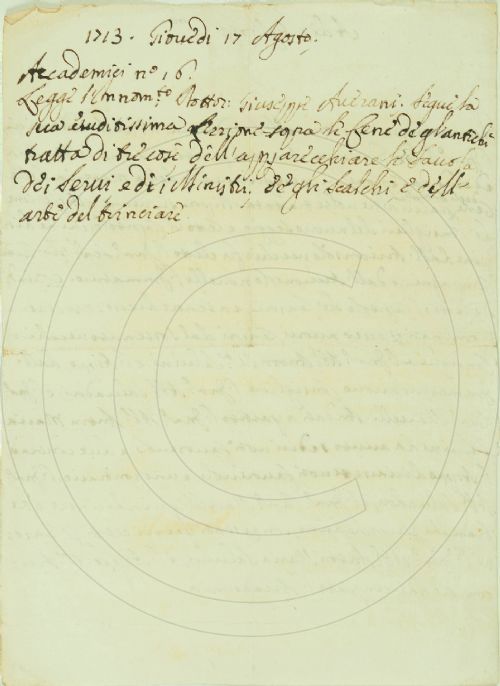 1713. Giovedi 17 Agosto.
Accademici nº 16.
Legge l'Innom.to Dottor: Giuseppe Averani. Segue la
sua eruditissima Lezione sopra le Cene degl'antichi
tratta di tre cose dell'apparecchiare le tavole
dei Servi e di i Ministri, de gli Scalchi e dell'
arte del trinciare.